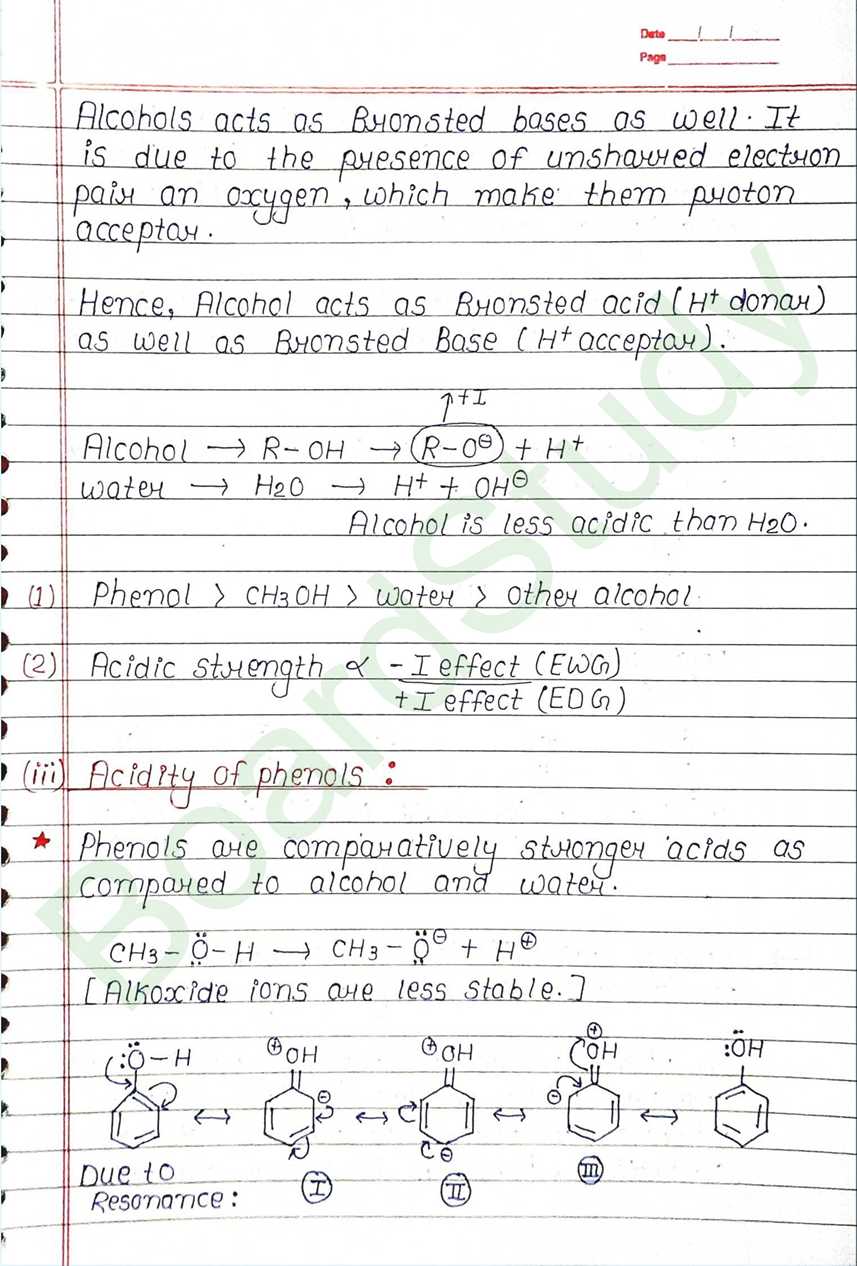 Date / /
Page
Alcohols acts as Bronsted bases as well. It
is due to the presence of unsharred electron
pair an oxygen, which make them proton
acceptar.
Hence, Alcohol acts as Bronsted acid (H⁺ donar)
as well as Bronsted Base (H⁺ acceptar).
↑+I
Alcohol → R-OH → R-O⊖ + H⁺
water → H2O → H⁺ + OH⊖
Alcohol is less acidic than H2O.
(1) Phenol > CH3OH > water > other alcohol
(2) Acidic strength ∝ -I effect (EWG)
+I effect (EDG)
(iii) Acidity of phenols :
★ Phenols are comparatively stronger acids as
compared to alcohol and water.
CH3-Ö-H → CH3-Ö⊖ + H⊕
[Alkoxide ions are less stable.]
:Ö-H ⊕OH ⊕OH ⊕OH :ÖH
⊖ ⊖ ⊖
↔ ↔ ↔ ↔
Due to
Resonance: I II III
BoardStudy